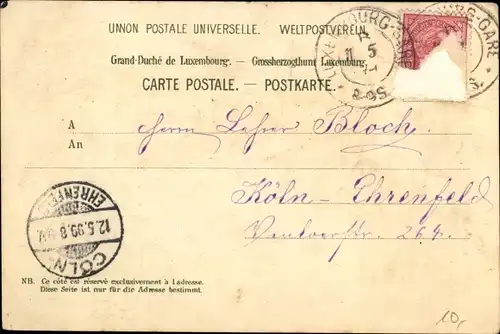 UNION POSTALE UNIVERSELLE. WELTPOSTVEREIN.
Grand-Duché de Luxembourg. - Grossherzogthum Luxemburg.
CARTE POSTALE. - POSTKARTE.
LUXEMBOURG-GARE
5
8-9S
A
An
Herrn Lehrer Bloch.
Köln-Ehrenfeld
Venloerstr. 264.
CÖLN-
EHRENFELD
12.5.99.8-9V.
NB. Ce côté est réservé exclusivement à l'adresse.
Diese Seite ist nur für die Adresse bestimmt.
10,